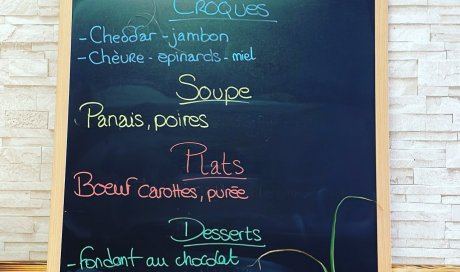 CROQUES
- Cheddar - jambon
- Chèvre - épinards - miel
Soupe
Panais, poires
Plats
Boeuf carottes, purée
Desserts
- fondant au chocolat